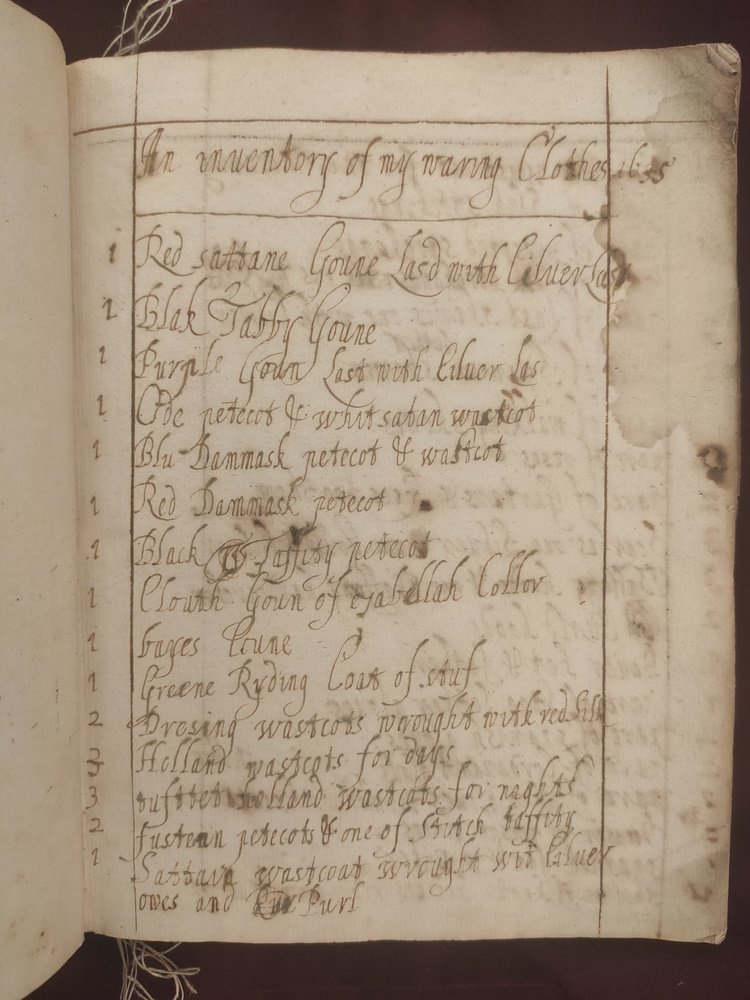 An inventory of my waring Clothes 1635
1 Red sattane Goune Lasd with Silver Las
1 Blak Tabby Goune
1 Purple Goun Last with Silver Las
1 petecot & whit satan wastcot
1 Blu Dammask petecot & wastcot
1 Red Dammask petecot
1 Black Taffity petecot
1 Clouth Goun of esabellah Collor
1 bayes Goune
1 Greene Ryding Coat of stuf
2 Dresing wastcots wrought with red Silk
3 Holland wastcots for days
3 tufttet holland wastcots for nights
2 fustean petecots & one of Stitch taffity
1 Sattain wastcoat wrought wit Silver
owes and Purl